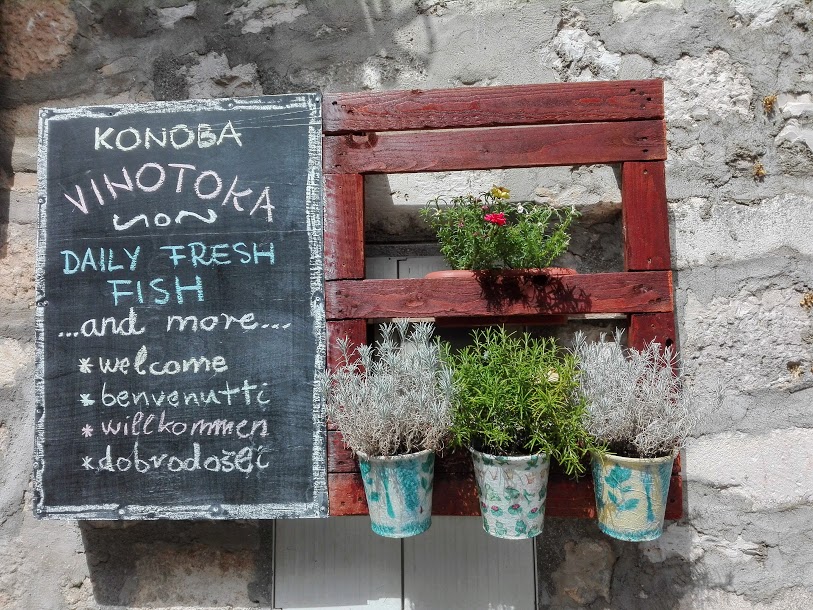 KONOBA
VINOTOKA
DAILY FRESH
FISH
...and more...
*welcome
*benvenutti
*willkommen
*dobrodošli